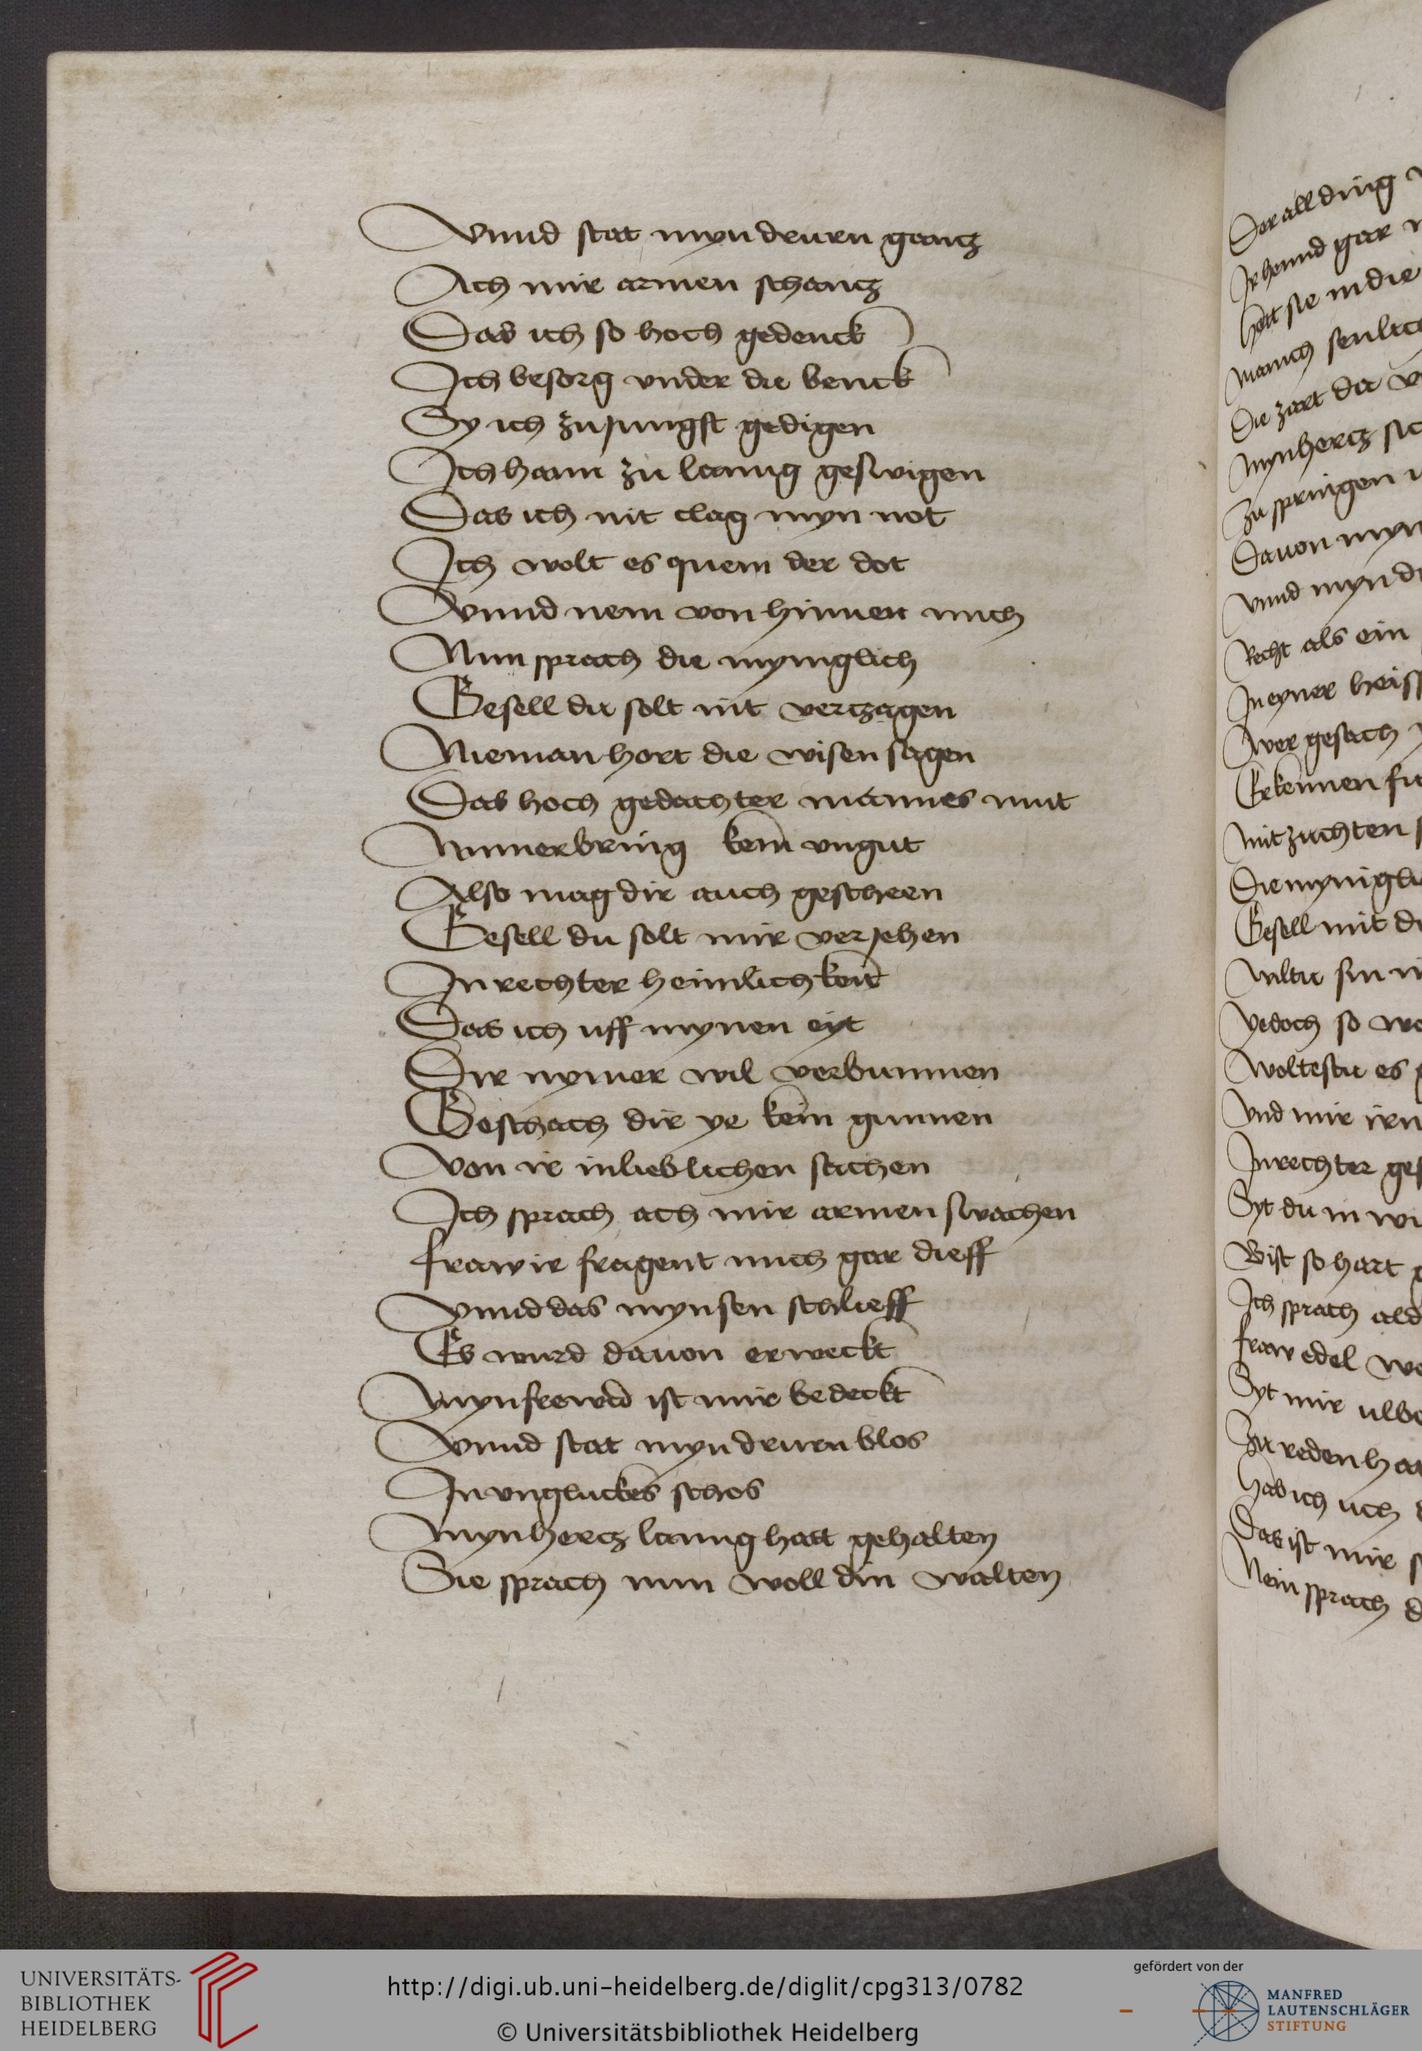 Vnnd stat myn druern gantz
Ach mir armen schantz
Das ich so hoch gedenck
Ich besorg vnder die benck
Sy ich zu jungst gedigen
Ich hann zu lanng geswigen
Das ich nit clag myn not
Ich wolt es quem der dot
Vnnd nem von hinnen mich
Nun sprach die mynnglich
Gesell du solt nit vertzagen
Nieman hort die wisen sagen
Das hoch gedachter mannes mut
Nymerbring kein vngut
Also mag dir auch gescheen
Gesell du solt mir verjehen
In rechter heimlichkeit
Das ich uff mynen eyt
Dir nymer wil verbunnen
Geschach dir ye kein gunnen
Von ir inlieblichen sachen
Ich sprach ach mir armen swachen
fraw ir fragent mich gar dieff
Vnnd das mynsen schlieff
Es wurd dauon erweckt
Myn frewd ist mir bedeckt
Vnnd stat myn druren blos
In vngluckes schos
Myn hertz lanng hatt gehalten
Sie sprach nun woll din walten
Der all ding
Ir hennd gar
hett sie in die
manch senlich
Die zart da
Myn hertz sich
Zu springen
Dauon myn
Vnnd myn
Recht als ein
In eyner heiss
Wer gesach
Erkennen
Mit zuchten
Die mynigli
Gesell mit
Wiltu sin
Yedoch so
Woltestu es
Vnd mir irn
In rechter
Syt du in
Bist so hart
Ich sprach
fraw edel
Syt mir
Zu reden
Hab ich uch
Das ist mir
Nein sprach
UNIVERSITÄTS-
BIBLIOTHEK
HEIDELBERG
http://digi.ub.uni-heidelberg.de/diglit/cpg313/0782
© Universitätsbibliothek Heidelberg
gefördert von der
MANFRED
LAUTENSCHLÄGER
STIFTUNG